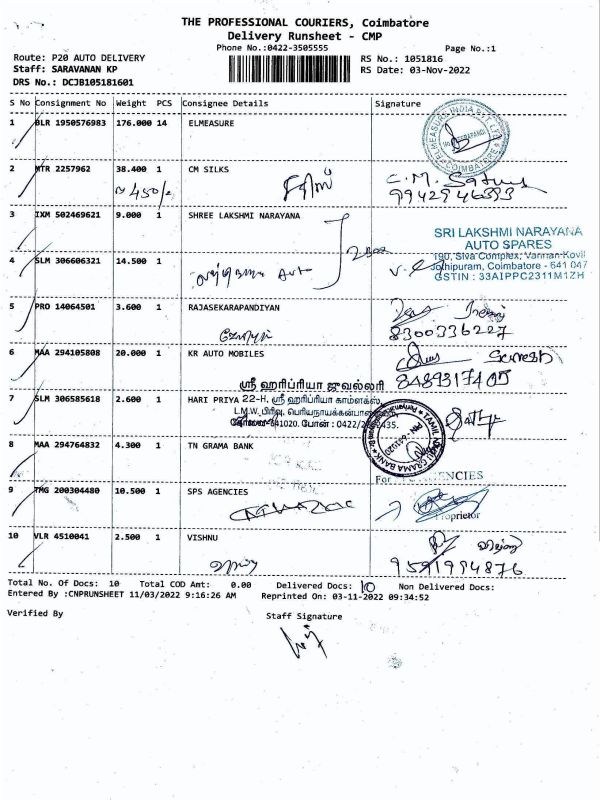 THE PROFESSIONAL COURIERS, Coimbatore
Delivery Runsheet - CMP
Phone No.:0422-3505555
Page No.:1
Route: P20 AUTO DELIVERY
RS No.: 1051816
Staff: SARAVANAN KP
RS Date: 03-Nov-2022
DRS No.: DCJB105181601
S No Consignment No Weight PCS Consignee Details Signature
1 BLR 1950576983 176.000 14 ELMEASURE
COIMBATORE
2 MTR 2257962 38.400 1 CM SILKS
C.M.
9942946393
3 IXM 502469621 9.000 1 SHREE LAKSHMI NARAYANA
SRI LAKSHMI NARAYANA
AUTO SPARES
190, Siva Complex, Vannan Kovil
Jothipuram, Coimbatore - 641 047
GSTIN : 33AIPPC2311M1ZH
4 SLM 306606321 14.500 1
5 PRO 14064501 3.600 1 RAJASEKARAPANDIYAN
8300336227
6 MAA 294105808 20.000 1 KR AUTO MOBILES
Suresh
8489317405
ஸ்ரீ ஹரிப்ரியா ஜுவல்லரி
7 SLM 306585618 2.600 1 HARI PRIYA
22-H, ஸ்ரீ ஹரிப்ரியா காம்ளக்ஸ்,
L.M.W. பிரிவு, பெரியநாயக்கன்பாளையம்
கோவை-641020. போன் : 0422/
2435.
8 MAA 294764832 4.300 1 TN GRAMA BANK
TAMIL NADU GRAMA BANK
For AGENCIES
9 TMG 200304480 10.500 1 SPS AGENCIES
Proprietor
10 VLR 4510041 2.500 1 VISHNU
9591994876
Total No. Of Docs: 10 Total COD Amt: 0.00 Delivered Docs: 10 Non Delivered Docs:
Entered By :CNPRUNSHEET 11/03/2022 9:16:26 AM Reprinted On: 03-11-2022 09:34:52
Verified By
Staff Signature